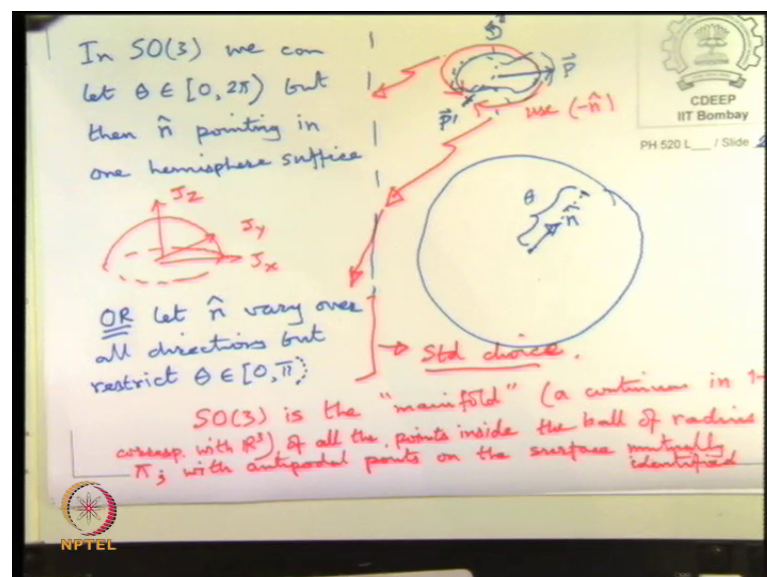 In SO(3) we can
let θ ∈ [0, 2π) but
then n̂ pointing in
one hemisphere suffice
J_Z
J_Y
J_X
OR let n̂ vary over
all directions but
restrict θ ∈ [0, π)
n̂
P⃗
P⃗'
use (-n̂)
θ
n̂
→ Std choice.
SO(3) is the "manifold" (a continuum in 1-
corresp. with R³) of all the points inside the ball of radius
π; with antipodal points on the surface mutually
identified
CDEEP
IIT Bombay
PH 520 L___ / Slide 2
NPTEL